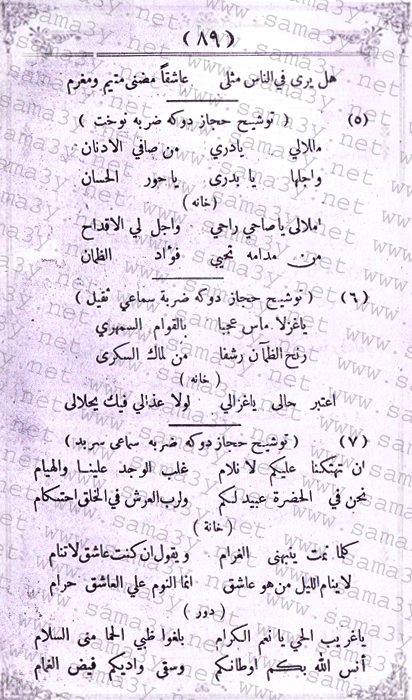 (٨٩)
هل يرى في الناس مثلى عاشقاً مضنى متيم ومغرم
(٥) ( توشيح حجاز دوكه ضربه نوخت )
املالي يادري من صافي الادنان
واجلها يا بدرى يا حور الحسان
( خانه )
املالى يا صاحي راحي واجل لي الاقداح
من مدامه تحيى فؤاد الظمان
(٦) ( توشيح حجاز دوكه ضربة سماعي ثقيل )
ياغزلا ماس عجبا بالقوام السمهري
رنح الظمآن رشفا من لماك السكرى
( خانه )
اعتبر حالى ياغزالي لولا عذالي فيك يحلالى
(٧) ( توشيح حجاز دوكه ضربه سماعى سربد )
ان تهتكنا عليكم لا نلام غلب الوجد علينا والهيام
نحن في الحضرة عبيد لكم ولرب العرش في الخلق احتكام
( خانة )
كلما نمت ينبهنى الغرام ويقول ان كنت عاشق لا تنام
لا ينام الليل من هو عاشق انما النوم على العاشق حرام
( دور )
ياغريب الحي يا نعم الكرام بلغوا قلبي الحما منى السلام
أنس الله بكم اوطانكم وسقى واديكم فيض الغمام
www.sama3y.net